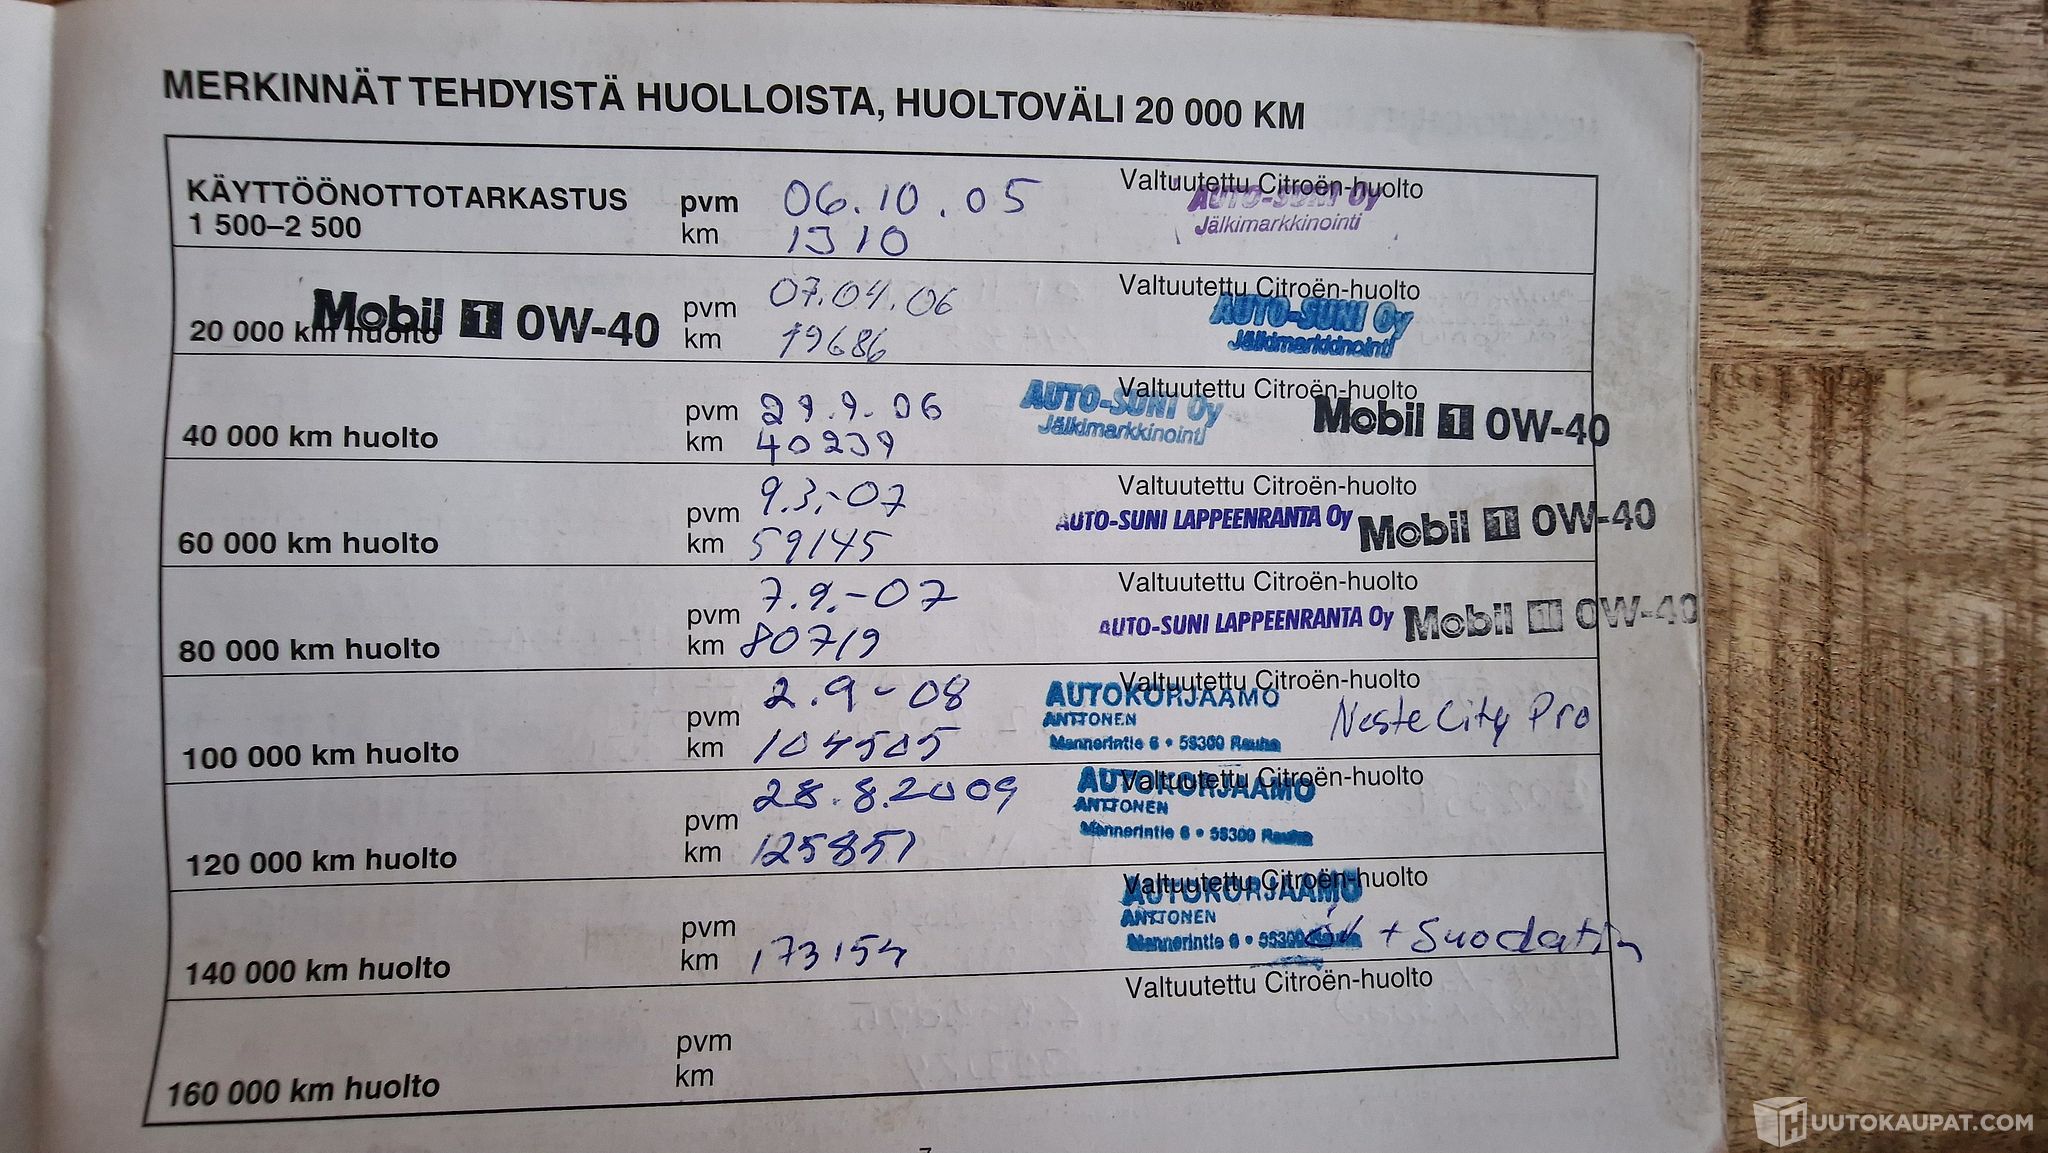 MERKINNÄT TEHDYISTÄ HUOLLOISTA, HUOLTOVÄLI 20 000 KM
KÄYTTÖÖNOTTOTARKASTUS
1 500–2 500
pvm 06.10.05
km 1310
Valtuutettu Citroën-huolto
AUTO-SUNI Oy
Jälkimarkkinointi
20 000 km huolto
Mobil 1 0W-40
pvm 07.04.06
km 19686
Valtuutettu Citroën-huolto
AUTO-SUNI Oy
Jälkimarkkinointi
40 000 km huolto
pvm 29.9.06
km 40239
Valtuutettu Citroën-huolto
AUTO-SUNI Oy
Jälkimarkkinointi
Mobil 1 0W-40
60 000 km huolto
pvm 9.3.-07
km 59145
Valtuutettu Citroën-huolto
AUTO-SUNI LAPPEENRANTA Oy
Mobil 1 0W-40
80 000 km huolto
pvm 7.9.-07
km 80719
Valtuutettu Citroën-huolto
AUTO-SUNI LAPPEENRANTA Oy
Mobil 1 0W-40
100 000 km huolto
pvm 2.9-08
km 104505
Valtuutettu Citroën-huolto
AUTOKORJAAMO
ANTTONEN
Mannerintie 6 • 55300 Rauha
Neste City Pro
120 000 km huolto
pvm 28.8.2009
km 125851
Valtuutettu Citroën-huolto
AUTOKORJAAMO
ANTTONEN
Mannerintie 6 • 55300 Rauha
140 000 km huolto
pvm
km 173154
Valtuutettu Citroën-huolto
AUTOKORJAAMO
ANTTONEN
Mannerintie 6 • 55300
+ Suodatin
160 000 km huolto
pvm
km
Valtuutettu Citroën-huolto
HUUTOKAUPAT.COM